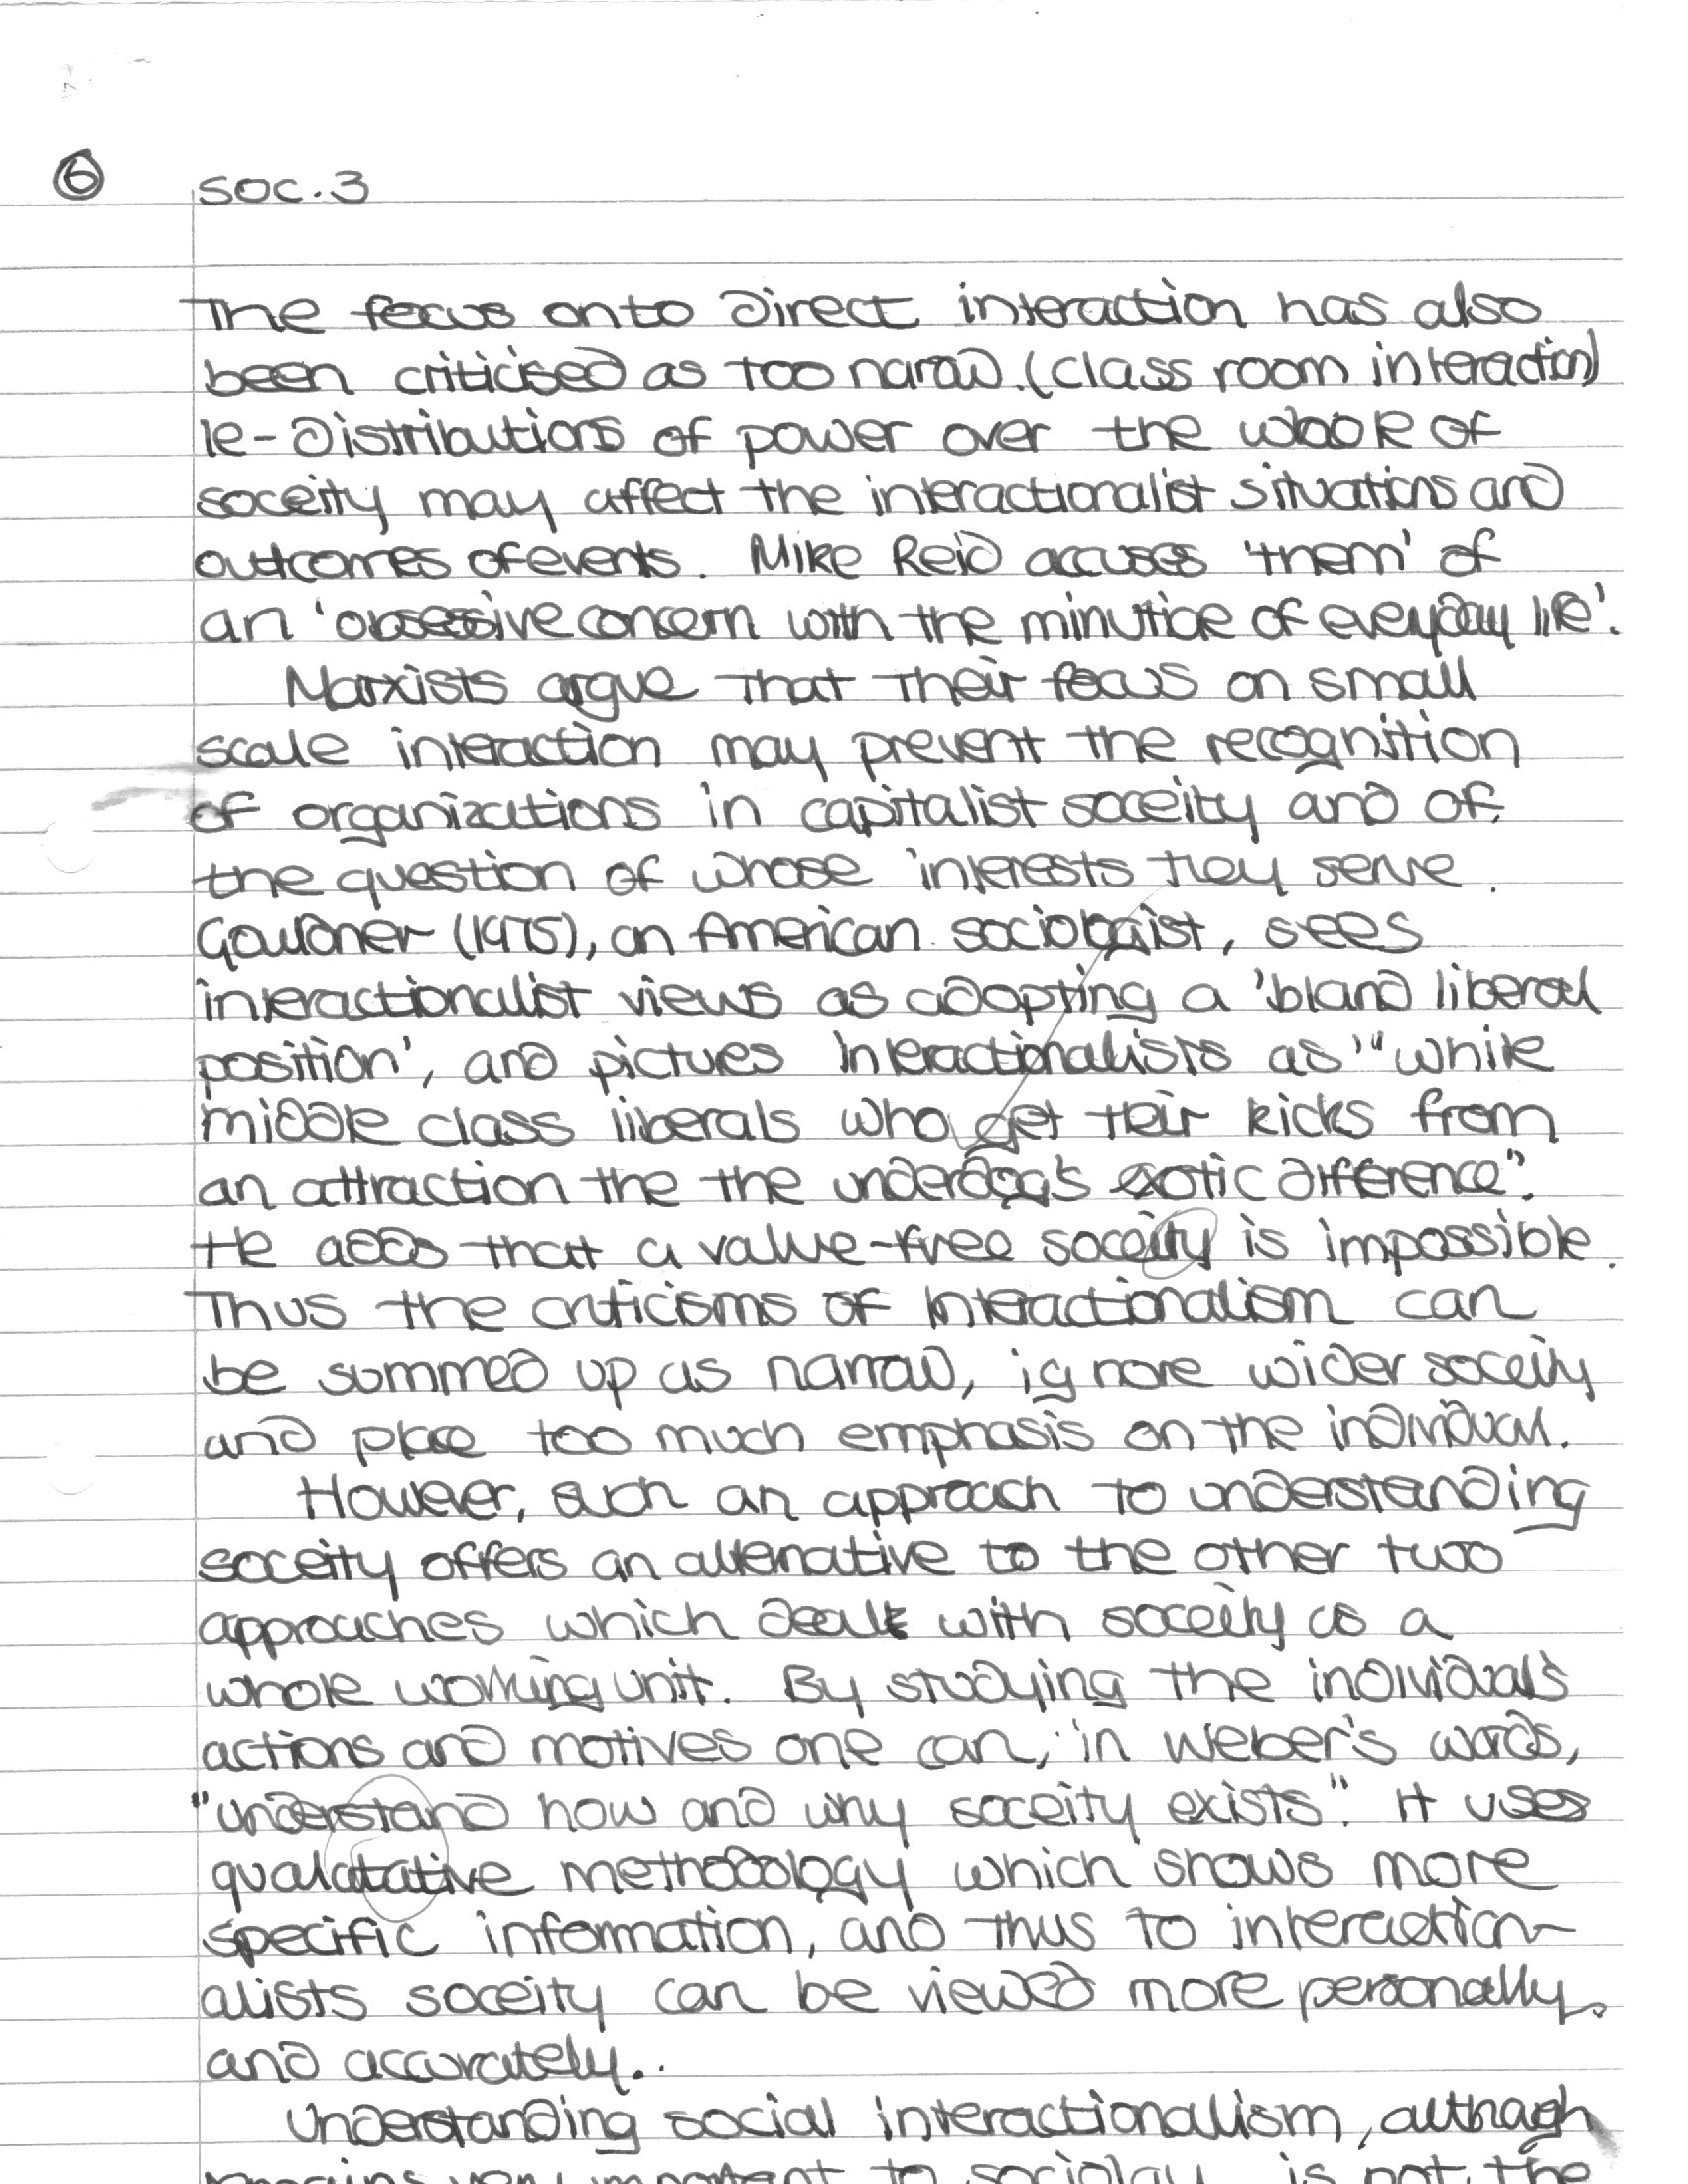 6 SOC.3
The focus onto direct interaction has also
been criticised as too narow. (class room interaction)
ie-distributions of power over the whole of
soceity may affect the interactionalist situations and
outcomes of events. Mike Reid accuses 'them' of
an 'obsessive concern with the minutiae of everyday life'.
Marxists argue that their focus on small
scale interaction may prevent the recognition
of organizations in capitalist soceity and of
the question of whose interests they serve.
Gouldner (1975), an American sociologist, sees
interactionalist views as adopting a 'bland liberal
position', and pictures Interactionalists as '"white
middle class liberals who get their kicks from
an attraction the the underdog's exotic difference".
He adds that a value-free soceity is impossible.
Thus the criticisms of Interactionalism can
be summed up as narrow, ignore wider soceity
and place too much emphasis on the individual.
However, such an approach to understanding
soceity offers an alternative to the other two
approaches which dealt with soceity as a
whole working unit. By studying the individual's
actions and motives one can, in Weber's words,
"understand how and why soceity exists". It uses
qualatative methodology which shows more
specific information, and thus to interaction-
alists soceity can be viewed more personally
and accurately.
Understanding social interactionalism, although
remains very important to sociology, is not the